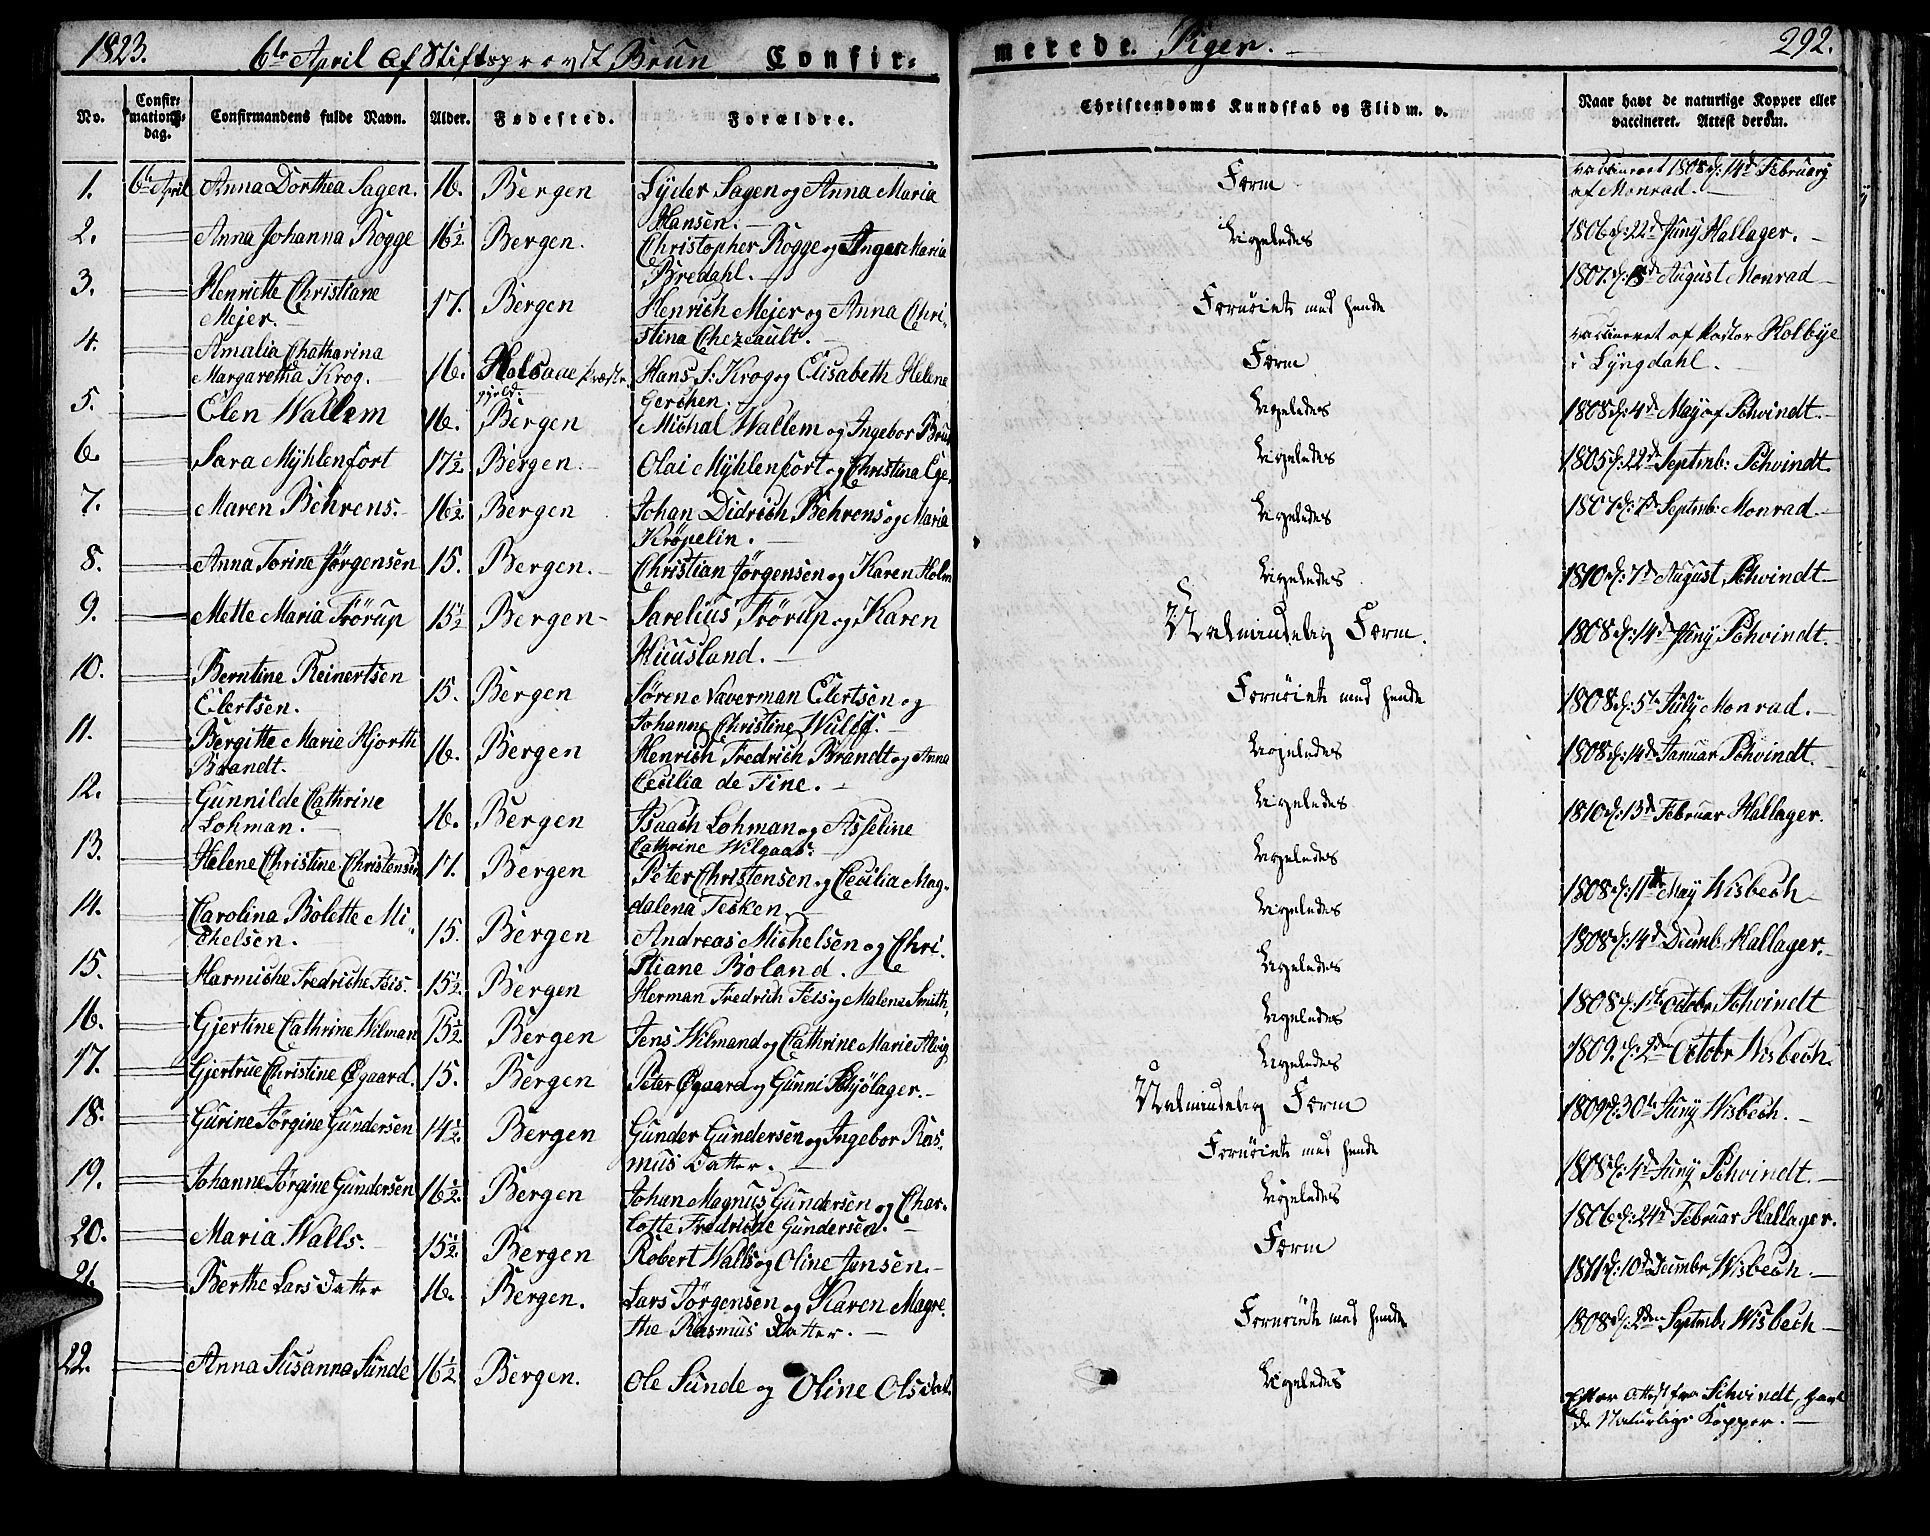 1823. 6te April af Stiftsprovst Brun Confir=
merede. Piger. 292.
No. Confir= mations= dag. Confirmandens fulde Navn. Alder. Fødested. Forældre. Christendoms Kundskab og Flid m. v. Naar havt de naturlige Kopper eller vaccineret. Attest derom.
1. 6te April Anna Dorthea Sagen. 16. Bergen Lyder Sagen og Anna Maria Hansen. vaccineret 1808 d: 14de February af Monrad.
2. Anna Johanna Rogge 16½ Bergen. Christopher Rogge og Anger Maria Bredahl. Ligeledes 1806 d: 22de Juny Hallager.
3. Henriette Christiane Mejer. 17. Bergen Henrich Mejer og Anna Christina Chezeault. Fornøiet med hende 1807. August Monrad
4. Amalia Chatharina Margaretha Krog. 16. Hans S: Krog og Elisabeth Helene Gerchen. vaccineret af Pastor Holbye i Lyngdahl.
5. Elen Wallem 16. Bergen Michal Wallem og Ingebor Brun Ligeledes 1808 d: 4de May af Schvindt.
6. Sara Mÿhlenfort 17½ Bergen. Olai Mÿhlenfort og Christina Ege. Ligeledes 1805 d: 22de Septmb: Schvindt.
7. Maren Behrens. 16½ Bergen Johan Didrich Behrens og Maria Kröpelin. Ligeledes 1807 d: 7de Septmb: Monrad
8. Anna Torine Jørgensen 15. Bergen. Christian Jørgensen og Karen Holm Ligeledes 1810 d: 7de August Schvindt
9. Mette Maria Frörup 15½ Bergen Sarelius Frörup og Karen Huusland. 1808 d: 14de Juny Schvindt.
10. Berntine Reinertsen Elertsen. 15. Bergen Søren Naverman Elertsen og Johanne Christine Wulff. Fornøiet med hende 1808 d: 5te July Monrad.
11. Bergitte Marie Hjorth Brandt. 16. Bergen Henrich Fredrich Brandt og Anna Cecilia de Fine. Ligeledes 1808 d: 14de Januar Schvindt.
12. Gunnilde Cathrine Lohman. 16. Bergen Isaach Lohman og Asseline Cathrine Wilgaas. Ligeledes 1810 d: 13de Februar Hallager.
13. Helene Christine Christensen 17. Bergen Peter Christensen og Cecilia Magdalena Tesken. Ligeledes 1808 d: 11te May Wisbech
14. Carolina Bolette Michelsen. 15. Bergen Andreas Michelsen og Christiane Boland. Ligeledes 1808 d: 14de Decmb: Hallager.
15. Harmiche Fredriche Feis. 15½. Bergen Herman Fredrich Feis og Malena Smith, Ligeledes 1808 d: 1te Octobr Schvindt
16. Gjertine Cathrine Wilman 15½. Bergen Jens Wilmand og Cathrine Marie Alvig Ligeledes 1809. d: 2den Octobr Wisbech.
17. Gjertrue Christine Øgaard. 15. Bergen Peter Øgaard og Gunni Schjölager. Ligeledes 1809 d: 30te Juny Wisbech.
18. Gurine Jørgine Gundersen 14½. Bergen Gunder Gundersen og Ingebor Rasmus Datter. 1808 d: 4de Juny Schvindt.
19. Johanne Jørgine Gundersen 16½. Bergen Johan Magnus Gundersen og Charlotte Fredricke Gundersen. Fornøiet med hende Ligeledes 1806 d: 24de Februar Hallager.
20. Maria Walls. 15½. Bergen Robert Walls og Oline Jensen. 1811 d: 10de Decmbr Wisbech.
21. Berthe Lars Datter 16. Bergen. Lars Jørgensen og Karen Magrethe Rasmus Datter. Fornøiet med hende 1808 d: 2den Septmb: Wisbech
22. Anna Susanna Sunde 16½ Bergen. Ole Sunde og Oline Ols Dat. Ligeledes Efter Attest fra Schvindt, havt de Naturlige Kopper.